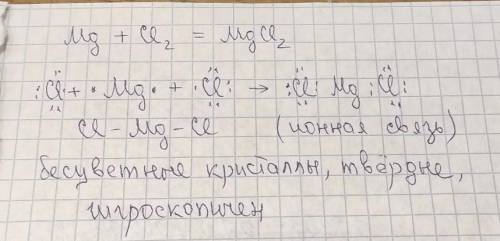 Mg + Cl₂ = MgCl₂
:Cl + · Mg · + · Cl: → :Cl: Mg :Cl:
Cl – Mg – Cl (ионная связь)
бесцветные кристаллы, твёрдые,
гигроскопичен